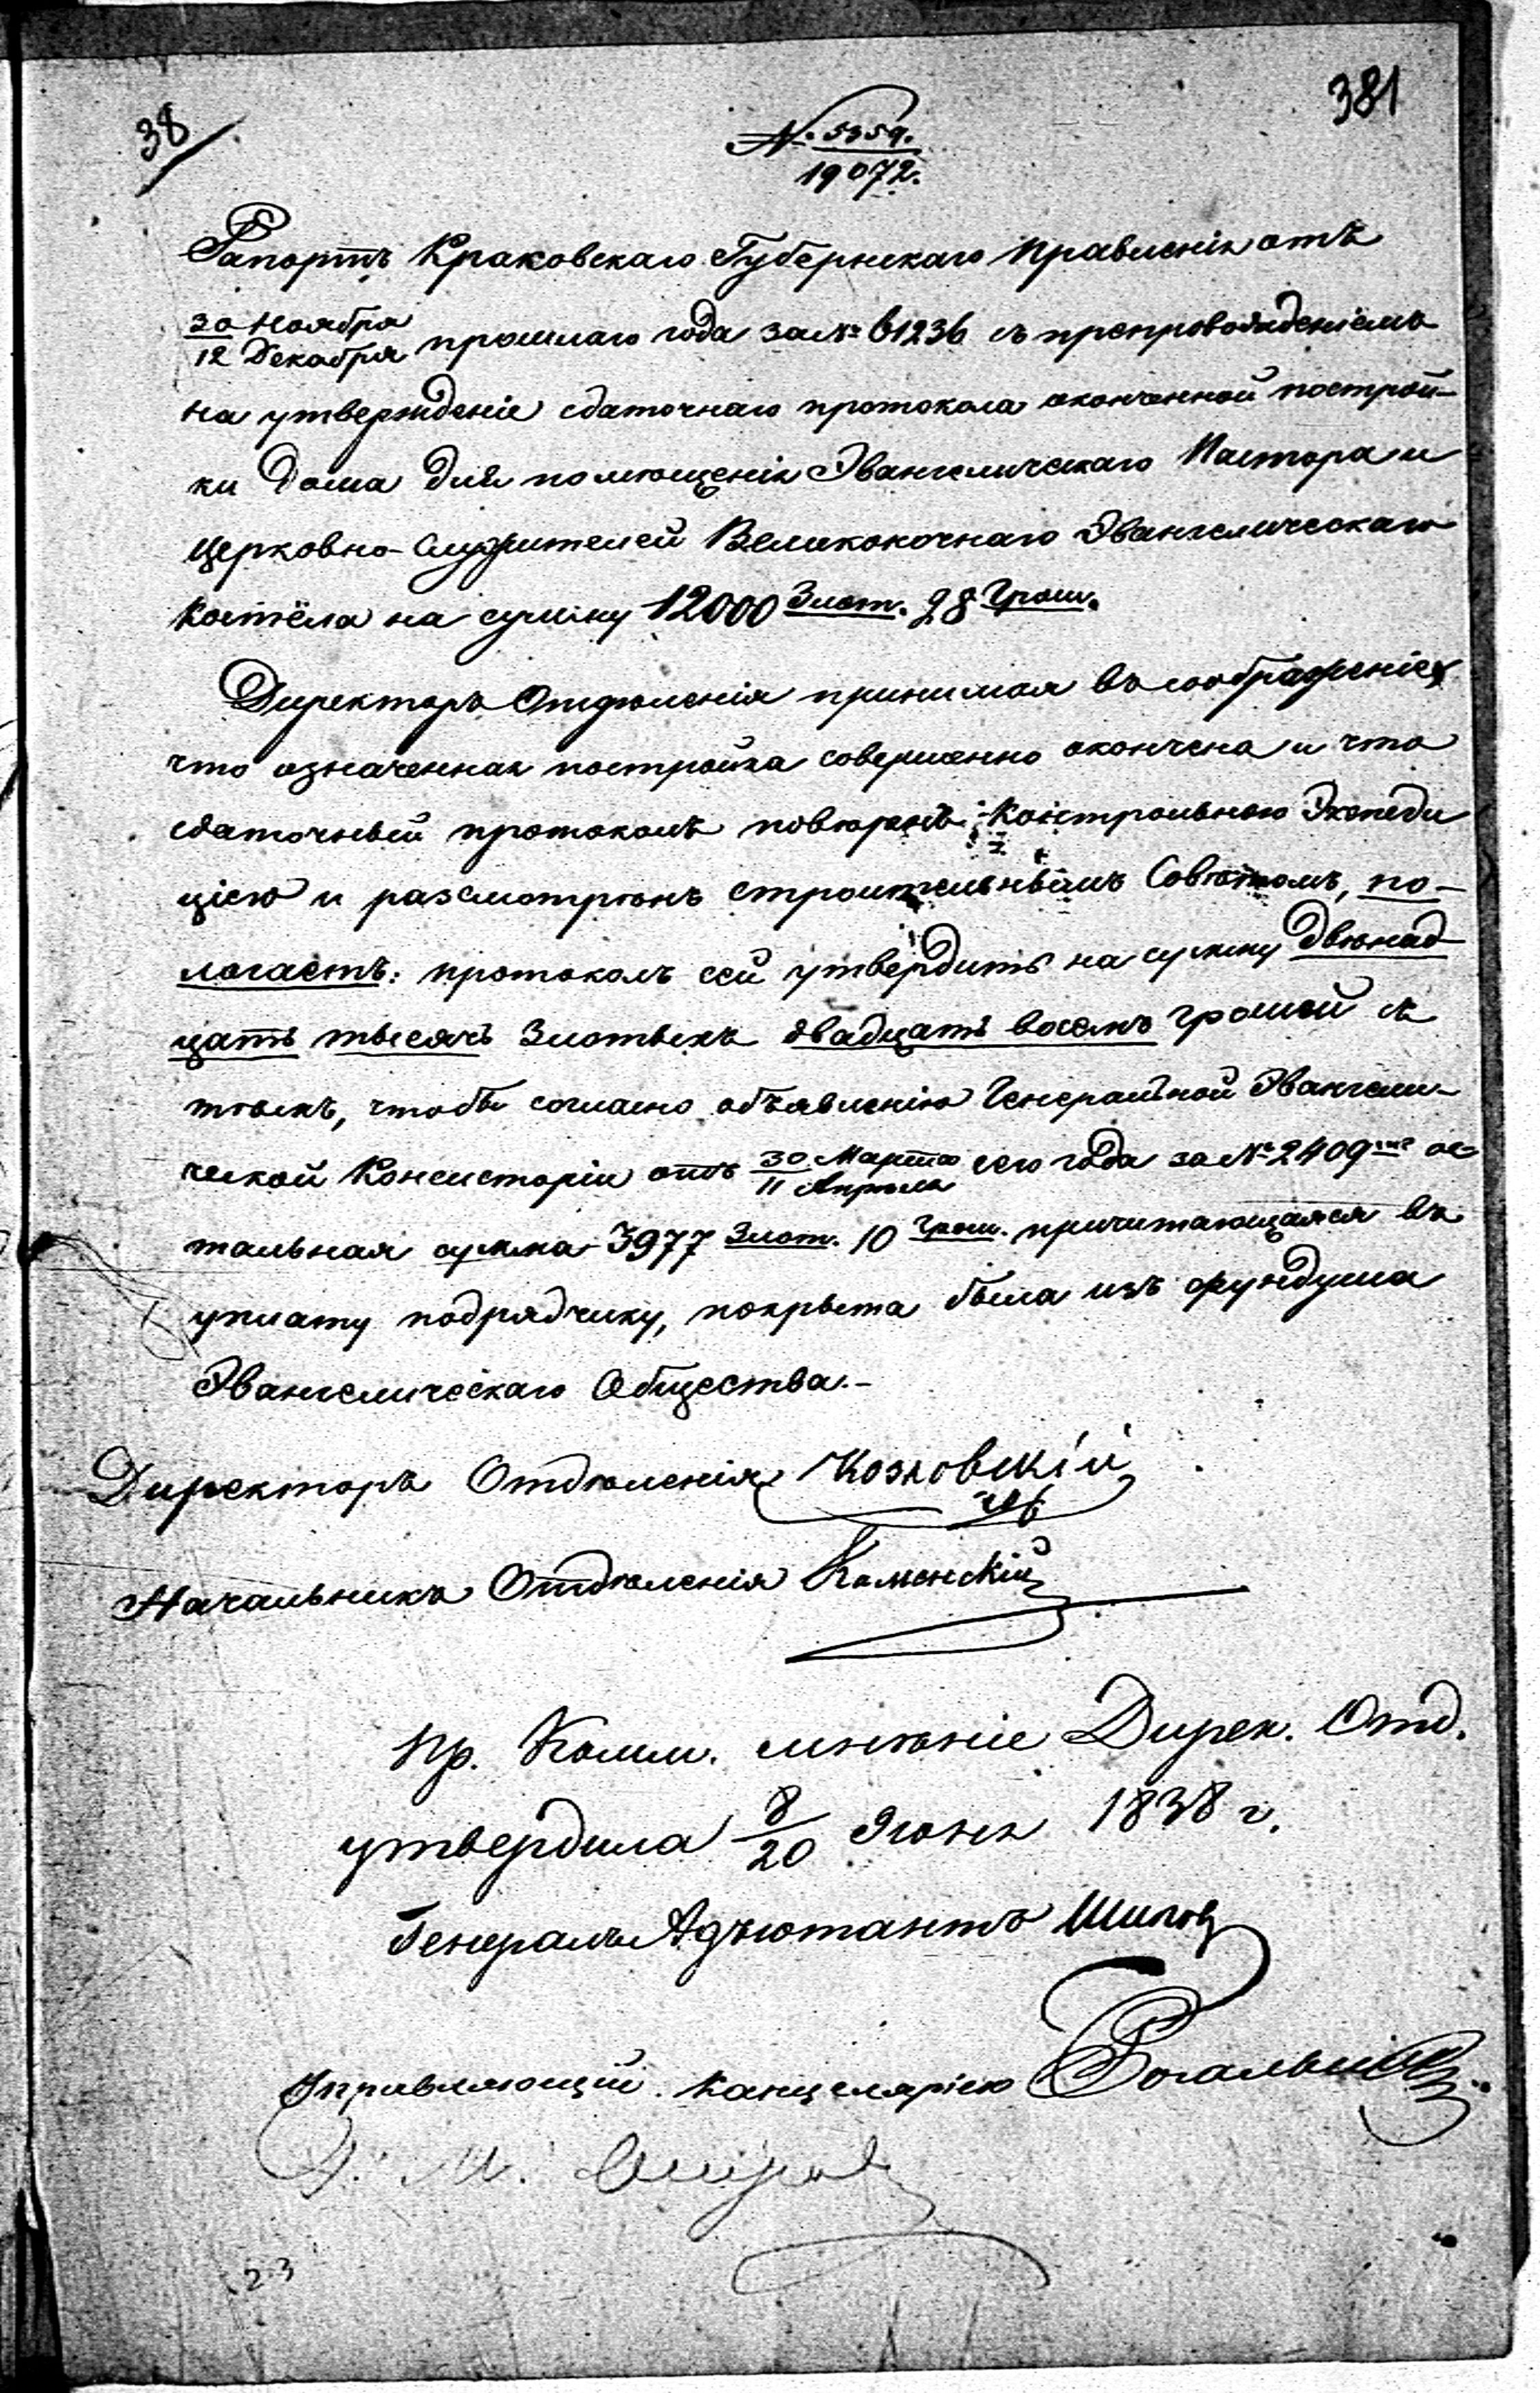 38
381
№ 5359.
19072.
Рапортъ Краковскаго Губернскаго Правленія отъ
30 Ноября
12 Декабря прошлаго года за № 61236 съ препровожденіемъ
на утвержденіе сдаточнаго протокола оконченной построй-
ки дома для помѣщенія Эвангелическаго Пастора и
Церковно-Служителей Эвангелическаго
Костёла на сумму 12000 Злот. 28 Грош.
Директоръ Отдѣленія принимая въ соображеніе,
что означенная постройка совершенно окончена и что
сдаточный протоколъ повѣренъ Контрольною Экспеди
ціею и разсмотрѣнъ Строительнымъ Совѣтомъ, по-
логаетъ: протоколъ сей утвердить на сумму двѣнад-
цать тысячъ Злотыхъ двадцать восемь грошей съ
тѣмъ, чтобы согласно объявленію Генеральной Эвангели-
ческой Консисторіи отъ 30 Марта
11 Апрѣля сего года за № 2409 ос-
тальная сумма 3977 Злот. 10 Грош. причитающаяся въ
уплату подрядчику, покрыта была изъ фундуша
Эвангелическаго Общества.-
Директоръ Отдѣленія Козловскій
Начальникъ Отдѣленія Каменскій
Пр. Комм. мнѣніе Дирек. Отд.
утвердила 8/20 Іюня 1838 г.
Генералъ Адъютантъ Шиповъ
Управляющій Канцеляріею
23